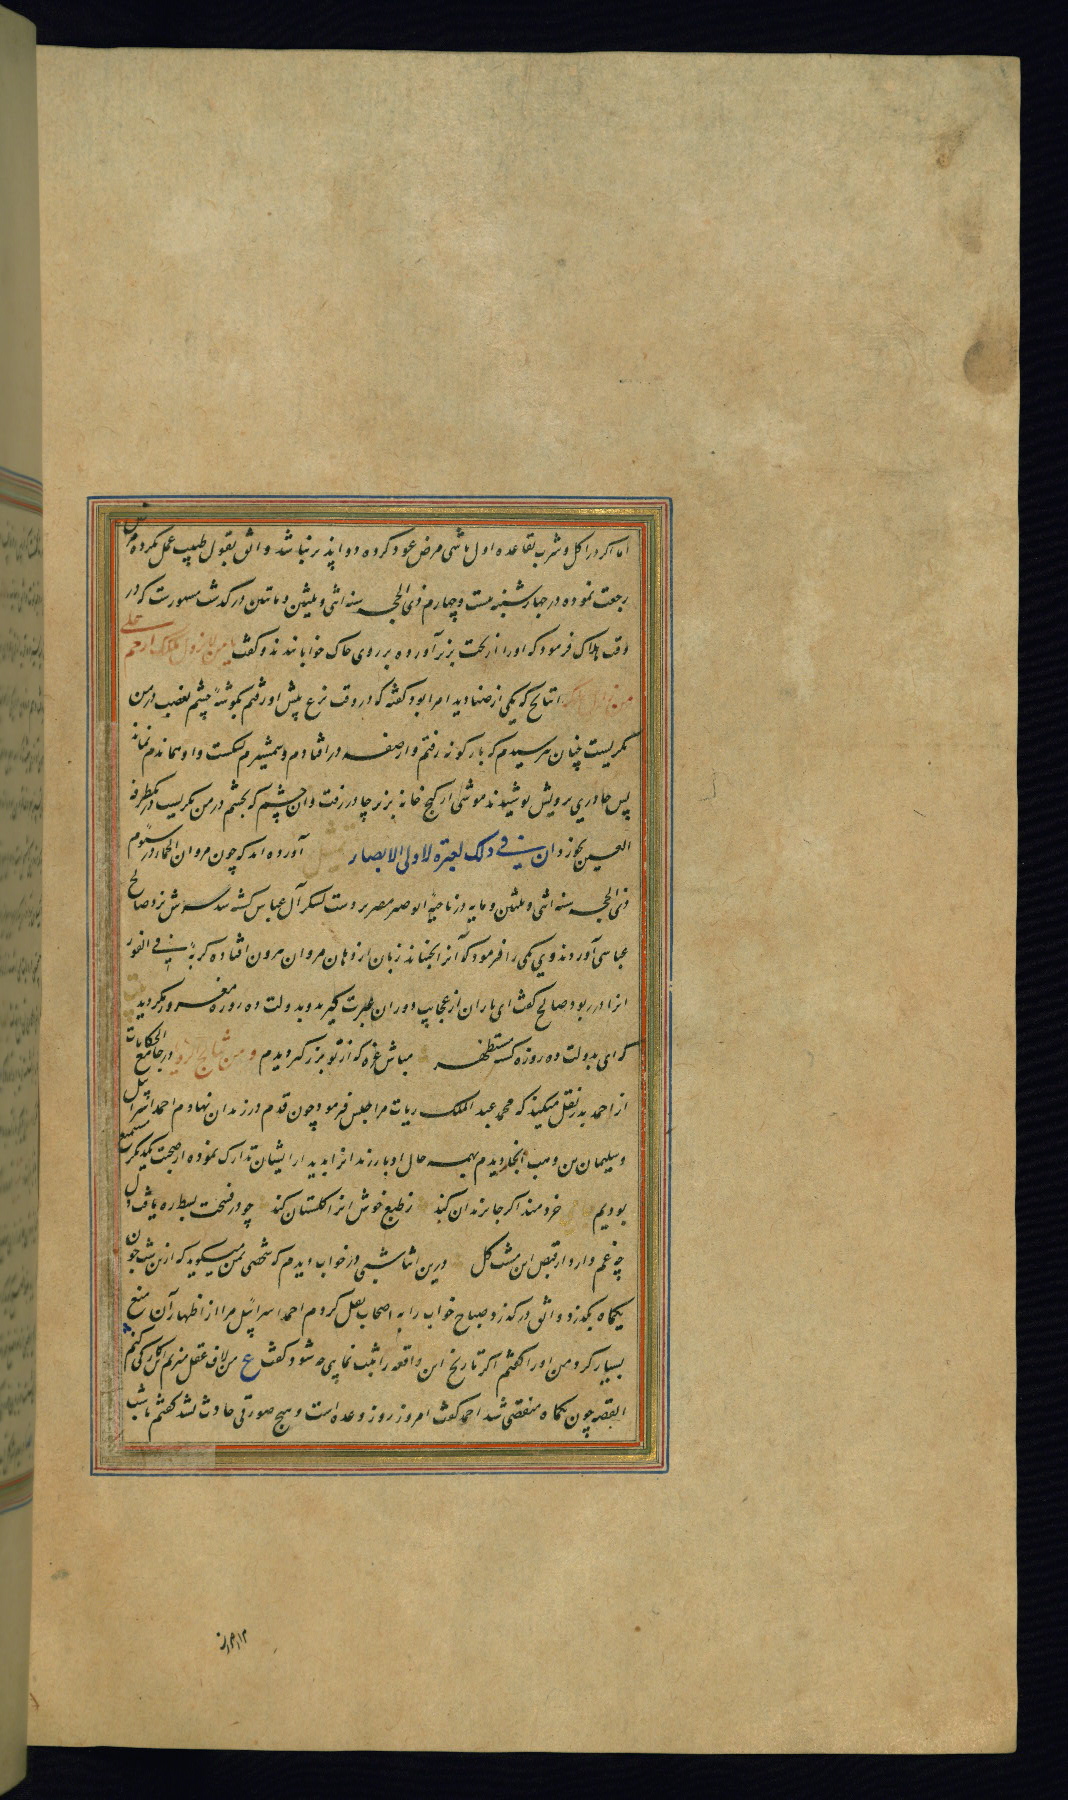 اما اکر در اکل و شرب بقاعده اول باشی مرض عود کرده دوا پذیر نباشد واثق بقول طبیب عمل نکرده مرض
رجعت نموده در چهارشنبه بیست و چهارم ذی الحجه سنه اثنی و ثلثین و ماتین درکذشت مشهورست که در
وقت هلاک فرمود که او را از تخت بزیر آورده بر روی خاک خوابانیدند و کفت یا من لا یزول ملکه ارحم علی
من زال ملکه ایتاخ که یکی از صنادید امرا بود کفته که در وقت نزع پیش او رفتم بکوشهٔ چشم بغضب در من
نکریست چنان ترسیدم که بازکونه رفتم و از صفه در افتادم و شمشیرم شکست و او هماندم نماند
پس چادری برویش پوشیدند موشی از کنج خانه بزیر چادر رفت و آن چشم که بخشم در من نکریست در طرفة
العین بخورد ان فی ذلک لعبرة لاولی الابصار تمثیل آورده اند که چون مروان الحمار در سیوم
ذی الحجه سنه اثنی و ثلثین و مایه در ناحیهٔ ابوصیر مصر بر دست لشکر آل عباس کشته شد سرش نزد صالح
عباسی آوردند وی یکی را فرمود که آنرا بجنباند زبان از دهان مروان بیرون افتاده کربهٔ فی الفور
انرا در ربود صالح کفت ای یاران از عجایب دوران عبرت کیرید و بدولت ده روزه مغرور مکردید
که ای بدولت ده روزه کشته مستظهر مباش غره که از تو بزرکتر دیدم و من نتایج الرویا در جامع الحکایات
از احمد بدر نقل میکند که محمد عبد الملک زیات مرا حبس فرمود چون قدم در زندان نهادم احمد اسرائیل
و سلیمان بن وهب آنجا دیدم بهمه حال اوبار زندانرا بدیدار ایشان تدارک نموده از صحبت یکدیکر مستمتع
بودیم خردمند اکر جا بزندان کند ز طبع خوش انرا کلستان کند چو در فسحت بسط ره یافت دل
چه غم دارد از قبض این مشت کل درین اثنا شبی در خواب دیدم که شخصی بمن میکوید که ازین شب چون
یکماه بکذرد واثق درکذرد صباح خواب را به اصحاب نقل کردم احمد اسرائیل مرا از اظهار آن منع
بسیار کرد من او را کفتم اکر تاریخ این واقعه را ثبت نمایی چه شود کفت ع من لاف عقل میزنم این کار کی کنم
القصه چون یکماه منقضی شد احمد کفت امروز روز وعده است و هیچ صورتی حادث نشد کفتم تا شب